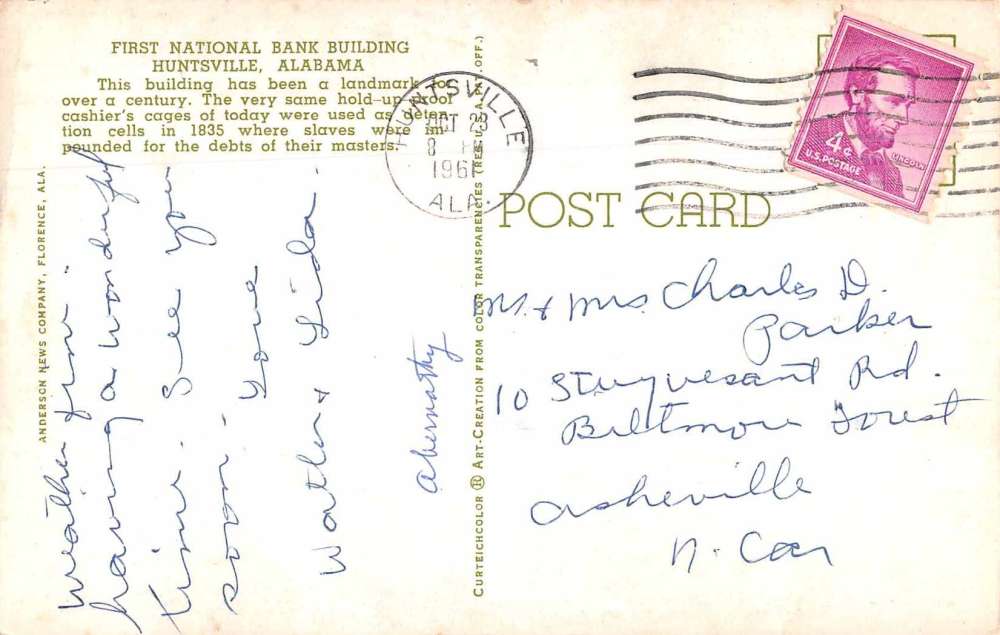 FIRST NATIONAL BANK BUILDING
HUNTSVILLE, ALABAMA
This building has been a landmark for
over a century. The very same hold-up proof
cashier's cages of today were used as deten-
tion cells in 1835 where slaves were im-
pounded for the debts of their masters.
HUNTSVILLE
OCT 23
8 PM
1961
ALA.
4¢
LINCOLN
U.S. POSTAGE
POST CARD
ANDERSON NEWS COMPANY, FLORENCE, ALA.
Weather fine.
having a wonderful
time. See you
soon.
Love
&
Abernathy
CURTEICHCOLOR ® ART-CREATION FROM COLOR TRANSPARENCIES (REG. U.S.A. PAT. OFF.)
Mr. & Mrs. Charles D.
Parker
10 Stuyvesant Rd.
Biltmore Forest
Asheville
N. Car